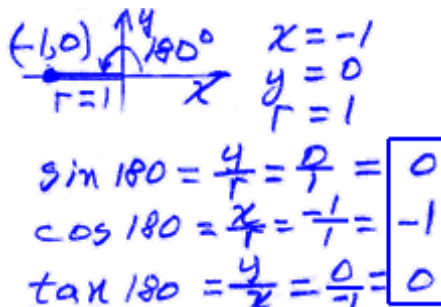 y
(-1,0) 180° x = -1
r=1 x y = 0
r = 1
sin 180 = y/r = 0/1 = 0
cos 180 = x/r = -1/1 = -1
tan 180 = y/x = 0/-1 = 0